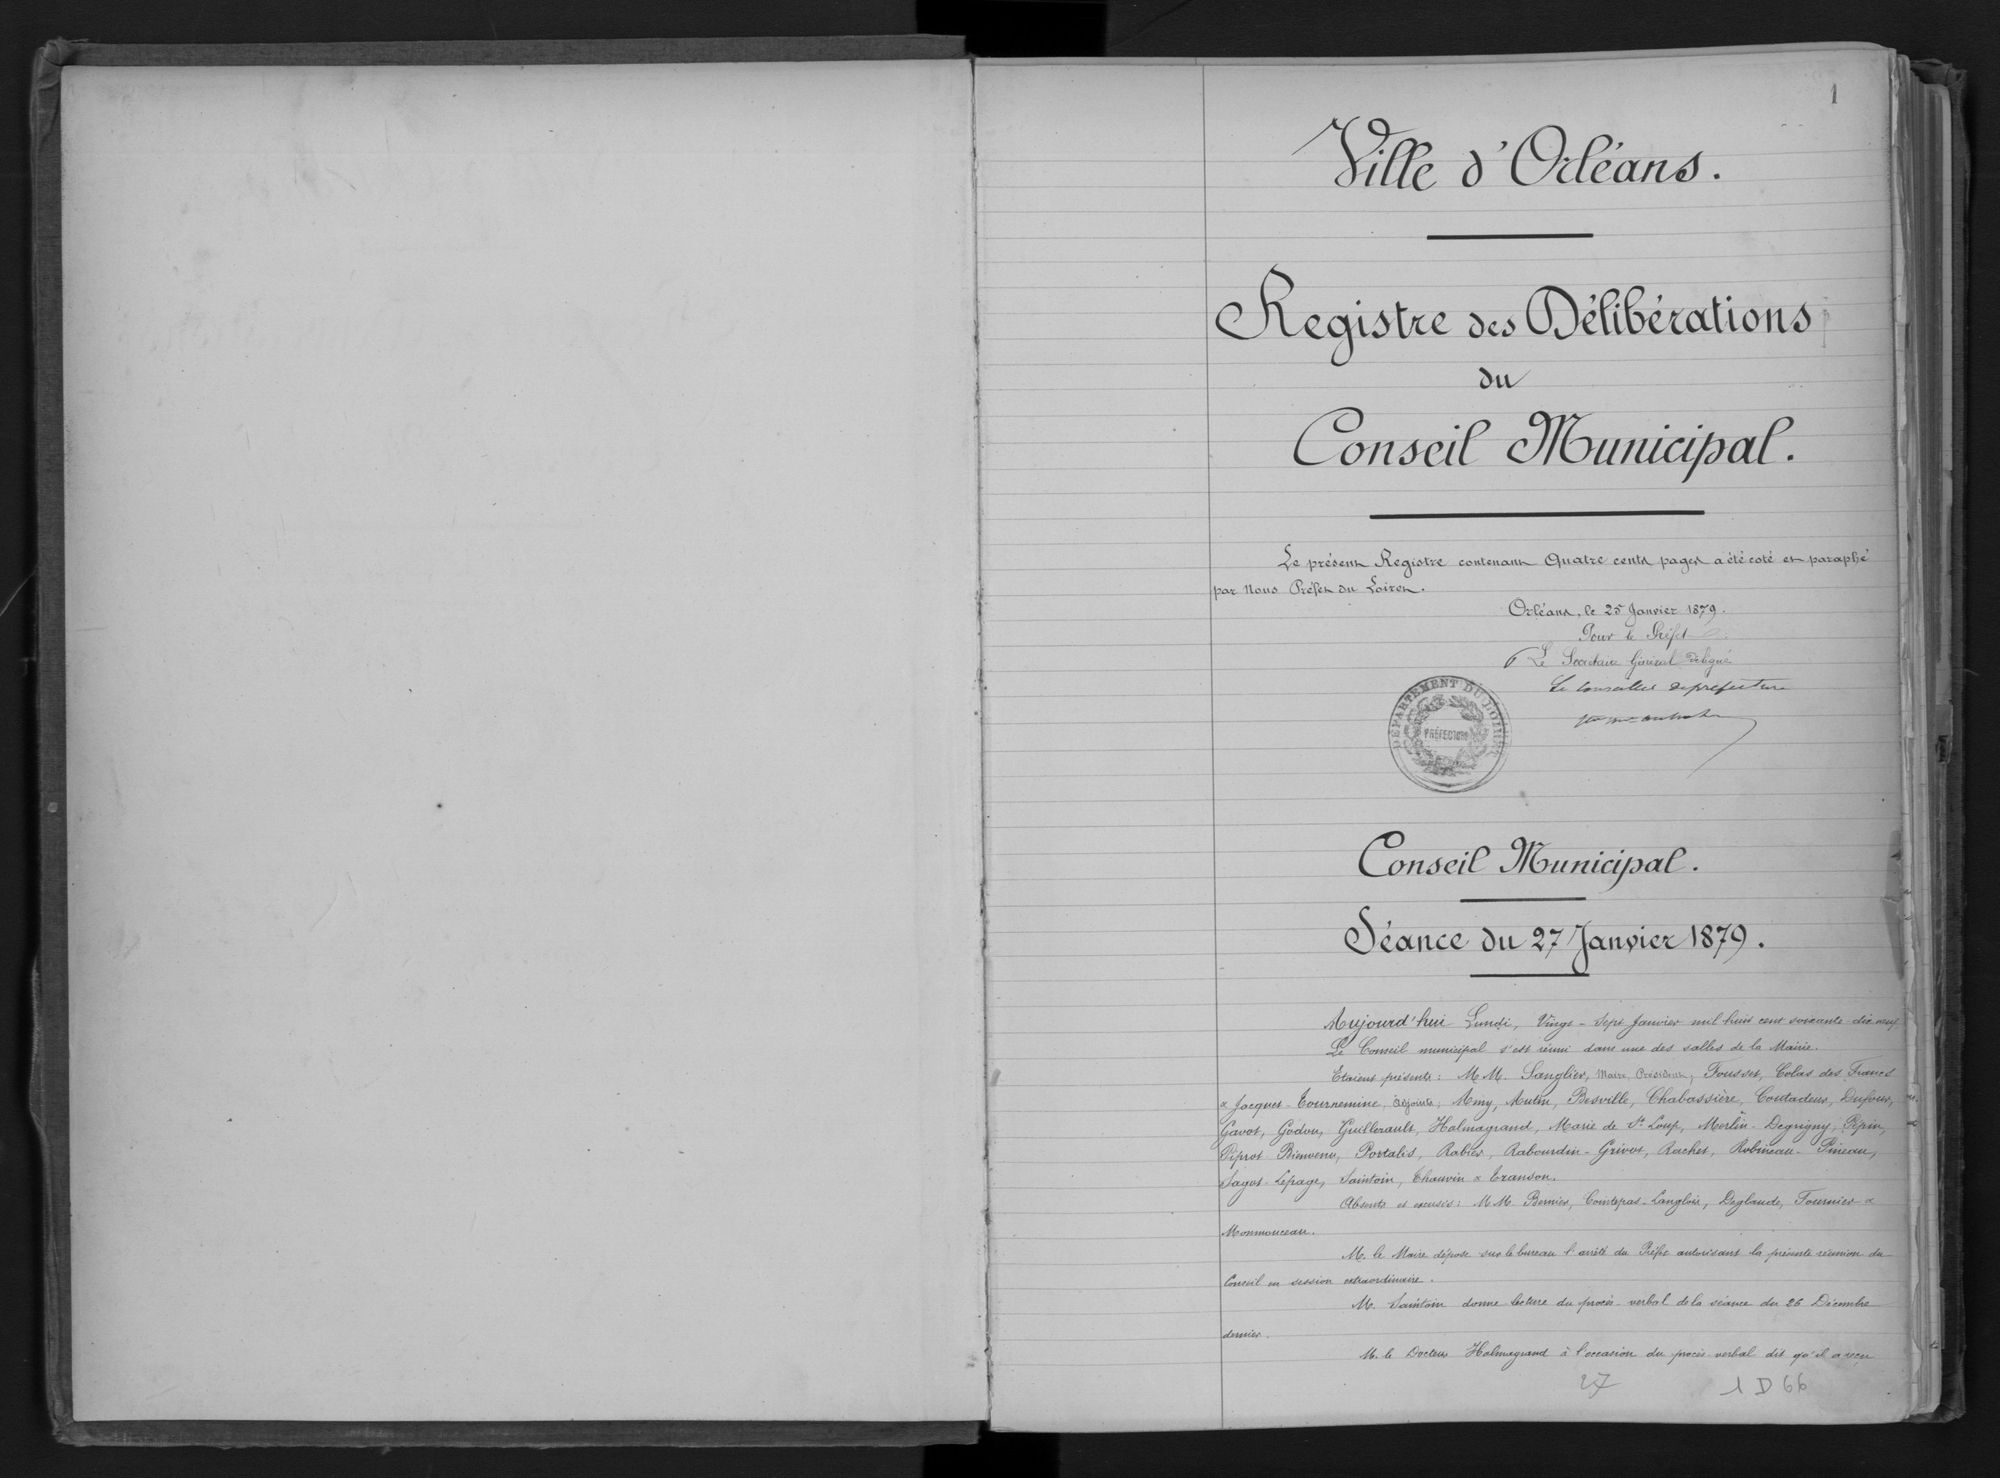 1
Ville d'Orléans.
Registre des Délibérations
du
Conseil Municipal.
Le présent Registre contenant Quatre cents pages a été coté et paraphé
par Nous Préfet du Loiret.
Orléans, le 25 Janvier 1879.
Pour le Préfet
Le Secrétaire Général délégué
Le Conseiller de préfecture
DÉPARTEMENT DU LOIRET
PRÉFECTURE
Conseil Municipal.
Séance du 27 Janvier 1879.
Aujourd'hui Lundi, Vingt-Sept Janvier mil huit cent soixante dix neuf
Le Conseil municipal s'est réuni dans une des salles de la Mairie.
Etaient présents: M.M. Sanglier, Maire, Président; Fousset, Colas des Francs
& Jacquet-Tournemine, adjoints; Amy, Autin, Besville, Chabassière, Coutadeur, Dufour,
Gavot, Godou, Guillerault, Halmagrand, Marie de St Loup, Merlin-Degrigny, Pépin,
Piprot-Bienvenu, Portalis, Rabier, Rabourdin-Grivot, Rachet, Robineau-Pineau,
Sagot-Lepage, Saintoin, Chauvin & Transon.
Absents et excusés: M.M. Bernier, Cointepas-Langlois, Deglaude, Fournier &
Monmouceau.
M. le Maire dépose sur le bureau l'arrêté du Préfet autorisant la présente réunion du
Conseil en session extraordinaire.
M. Saintoin donne lecture du procès-verbal de la séance du 26 Décembre
dernier.
M. le Docteur Halmagrand à l'occasion du procès-verbal dit qu'il a reçu
27 1 D 66